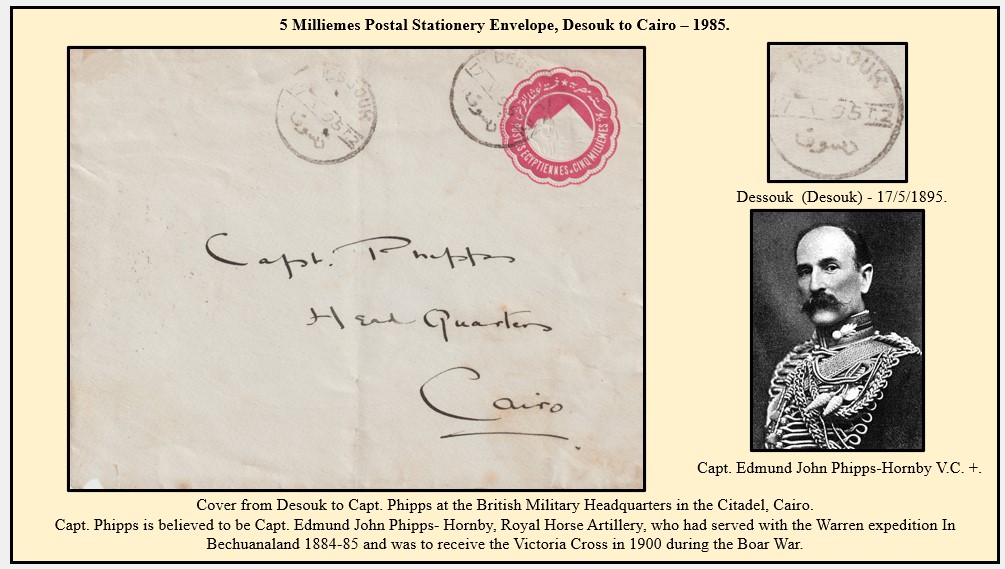 5 Milliemes Postal Stationery Envelope, Desouk to Cairo – 1985.
DESSOUK
95 T.2
دسوق
POSTES EGYPTIENNES. CINQ MILLIEMES
Capt. Phipps
Head Quarters
Cairo
DESSOUK
95 T.2
دسوق
Dessouk (Desouk) - 17/5/1895.
Capt. Edmund John Phipps-Hornby V.C. +.
Cover from Desouk to Capt. Phipps at the British Military Headquarters in the Citadel, Cairo.
Capt. Phipps is believed to be Capt. Edmund John Phipps- Hornby, Royal Horse Artillery, who had served with the Warren expedition In
Bechuanaland 1884-85 and was to receive the Victoria Cross in 1900 during the Boar War.